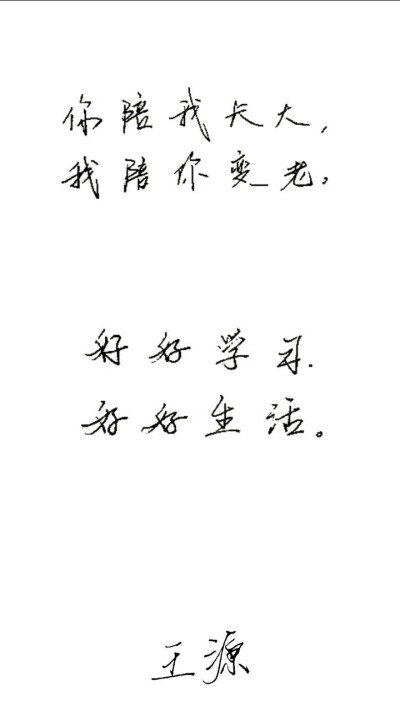 你陪我长大,
我陪你变老,
好好学习.
好好生活。
王源